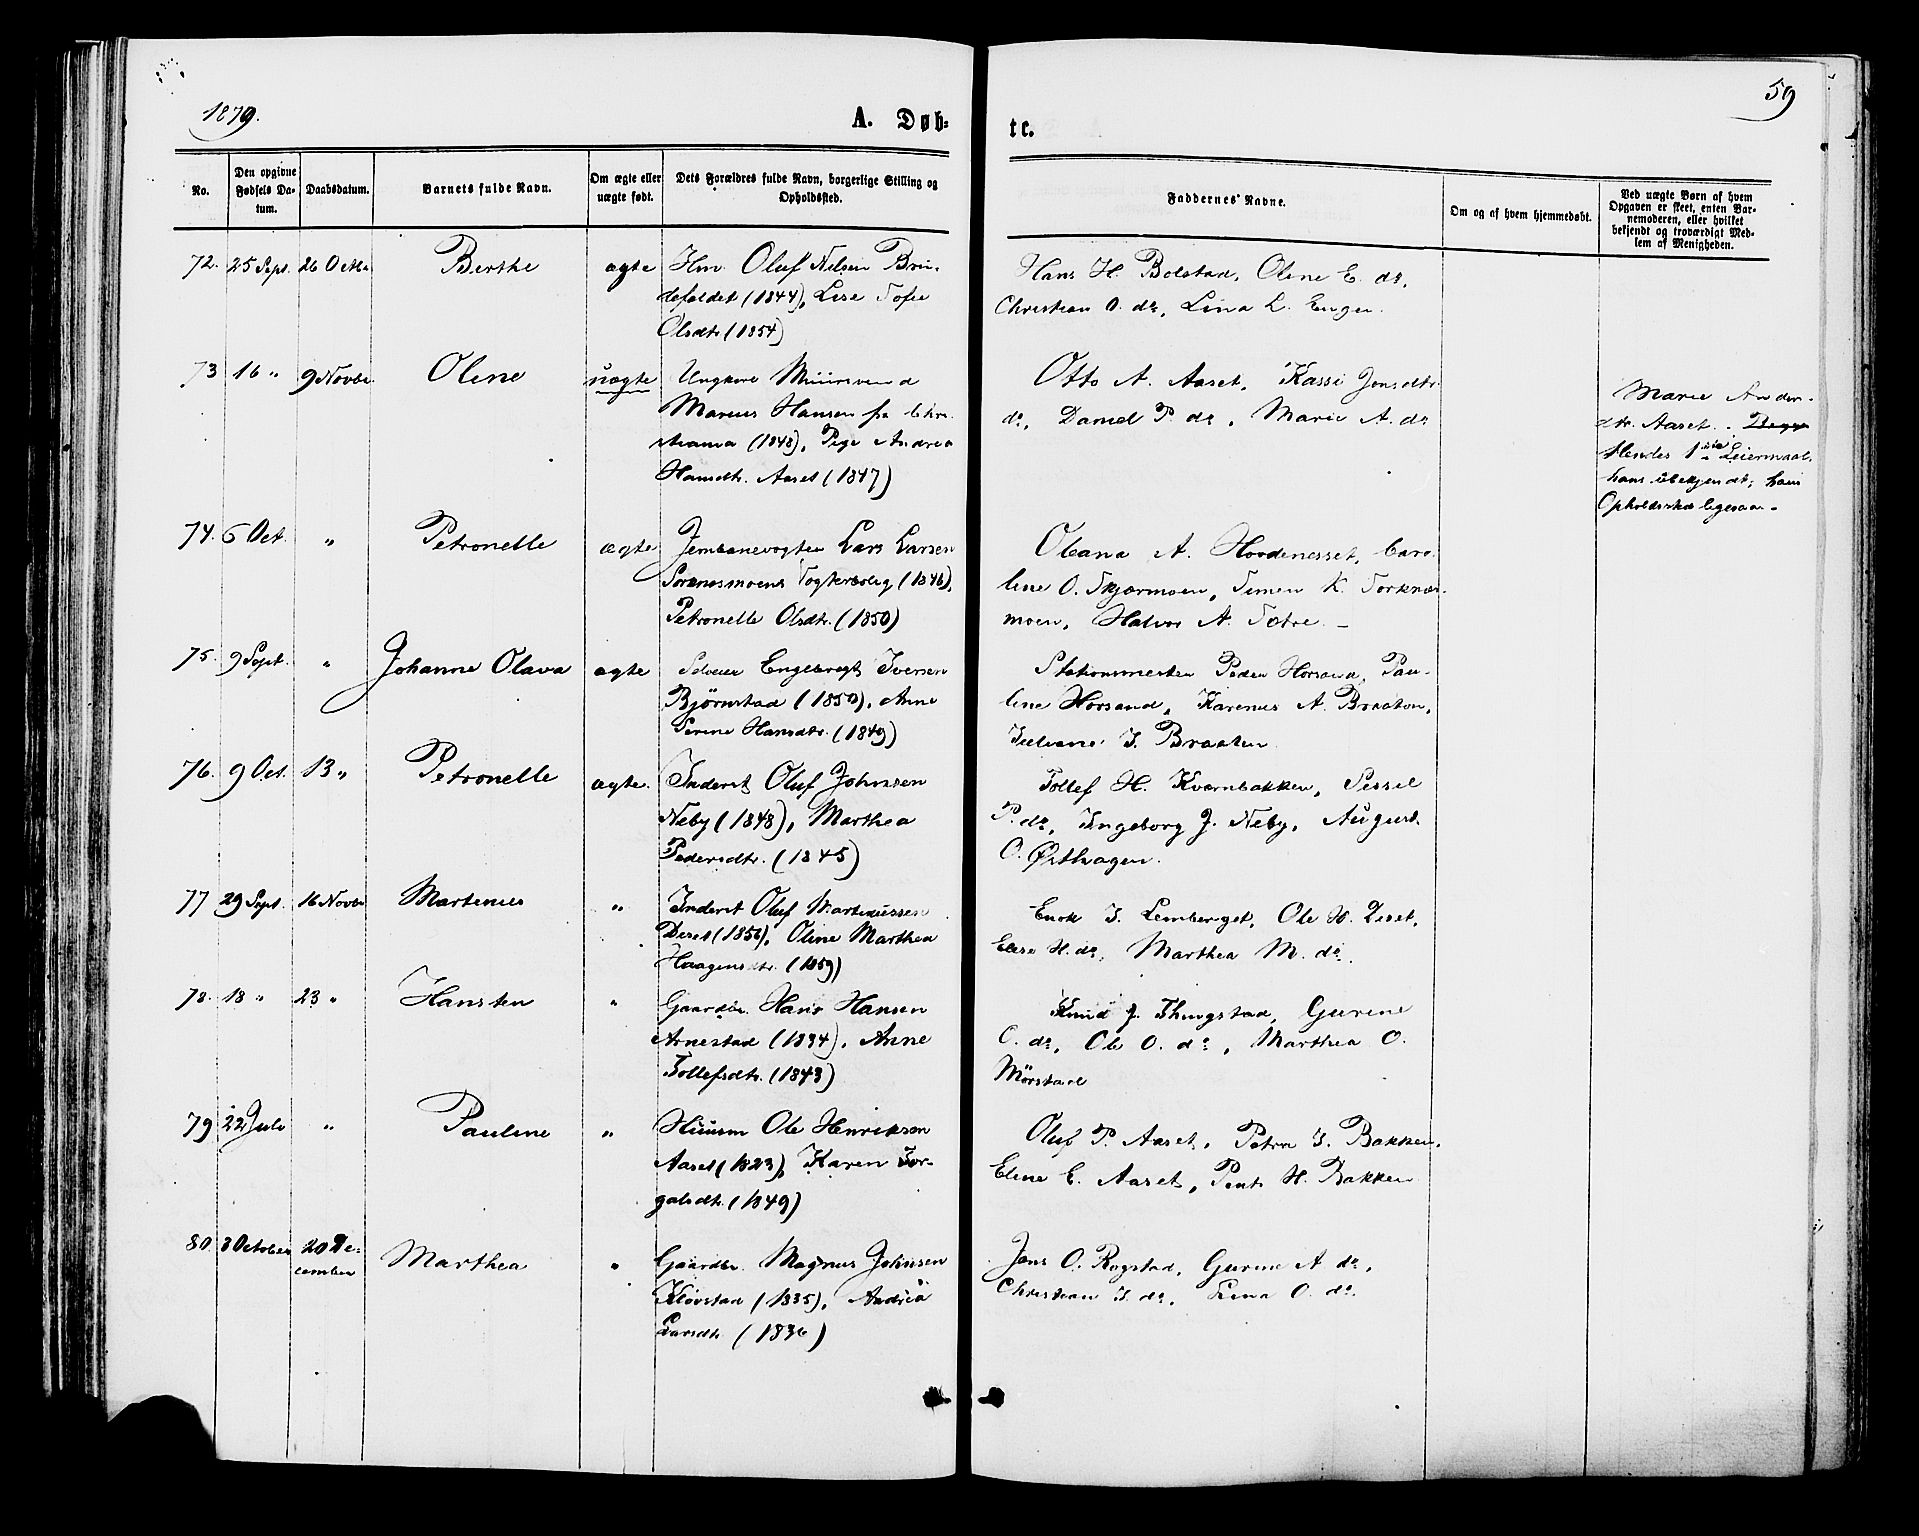 1879.
59
A. Døb-
te.
No.
Den opgivne Fødsels Da-tum.
Daabsdatum.
Barnets fulde Navn.
Om ægte eller uægte født.
Dets Forældres fulde Navn, borgerlige Stilling og Opholdssted.
Faddernes Navne.
Om og af hvem hjemmedøbt.
Ved uægte Børn af hvem Opgaven er skeet, enten Bar-nemoderen, eller hvilket bekjendt og troværdigt Med-lem af Menigheden.
72. 25 Sept. 26 Octbr Berthe ægte Hm. Oluf Nelsen Brin-
defaldet (1844), Lise Sofie
Olsdtr (1854)
Hans H. Bolstad, Oline E. do,
Christian O. do, Lina L. Engen.
73 16 " 9 Novbr Oline uægte Ungkarl Muursvend
Marius Hansen fra Chri-
stiania (1848), Pige Andrea
Hansdtr. Aaset (1847)
Otto A. Aaset, Kasse Jensdtr
do, Daniel P. do, Marie A. do
Marie Ander-
dtr. Aaset.
Hendes 1ste Leiermaal,
hans ubekjendt; hans
Opholdssted ligesaa.
74. 6 Oct. " Petronelle ægte Jernbanevogter Lars Larsen
Sorknesmoens Vogterbolig (1846),
Petronelle Olsdtr. (1850)
Oleana A. Hovdenesset, Caro-
line O. Skjærmoen, Simen K. Sorknæs-
moen, Halvor A. Sætre. -
75. 9 Sept. " Johanne Olava ægte Selveier Engebregt Iversen
Bjørnstad (1850), Anne
Serine Hansdtr. (1849)
Stationsmester Peder Horsand, Pau-
line Horsand, Karenus A. Braaten,
Juliane J. Braaten
76. 9 Oct. 13 " Petronelle ægte. Inderst Oluf Johnsen
Neby (1848), Marthea
Pedersdtr. (1845)
Tollef H. Kværnbakken, Sessel
P. do, Ingeborg J. Neby, August
O. Østhagen.
77 29 Sept. 16 Novbr Martinus " Inderst Oluf Martinussen
Diset (1856), Oline Marthea
Haagensdtr. (1859)
Enok J. Lemberget, Ole H. Diset,
Elise H. do, Marthea M. do.
78. 18 " 23 " Hansten " Gaardbr. Hans Hansen
Arnestad (1834), Anne
Tollefsdtr. (1843)
Knud J. Thingstad, Gurine
O. do, Ole O. do, Marthea O.
Mörstad
79 22 Juli " Pauline " Huusm Ole Henriksen
Aaset (1823), Karen Tor-
galsdtr. (1849)
Oluf P. Aaset, Petra J. Bakken,
Eline E. Aaset, Pent H. Bakken
80. 3 October 20 De-
cember Marthea " Gaardbr. Magnus Johnsen
Kløvstad (1835), Andrea
Larsdtr. (1836)
Jens O. Rogstad, Gurine A do,
Christian J. do, Lina O. do.